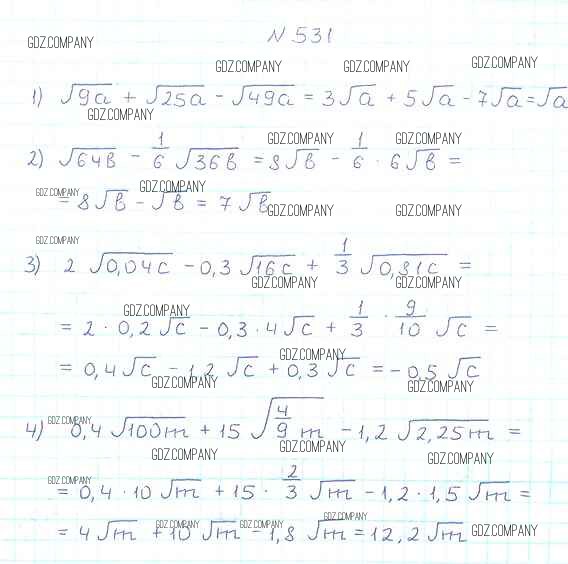 N 531
GDZ.COMPANY
GDZ.COMPANY GDZ.COMPANY GDZ.COMPANY
1) √9a + √25a - √49a = 3√a + 5√a - 7√a = √a
GDZ.COMPANY
GDZ.COMPANY GDZ.COMPANY
2) √64в - 1/6 √36в = 8√в - 1/6 · 6√в =
GDZ.COMPANY GDZ.COMPANY
= 8√в - √в = 7√в
GDZ.COMPANY GDZ.COMPANY
GDZ.COMPANY
3) 2 √0,04c - 0,3 √16c + 1/3 √0,81c =
GDZ.COMPANY GDZ.COMPANY
GDZ.COMPANY
= 2 · 0,2 √c - 0,3 · 4√c + 1/3 · 9/10 √c =
GDZ.COMPANY
= 0,4√c - 1,2 √c + 0,3√c = - 0,5 √c
GDZ.COMPANY GDZ.COMPANY
GDZ.COMPANY
4) 0,4 √100m + 15 √4/9 m - 1,2 √2,25m =
GDZ.COMPANY GDZ.COMPANY GDZ.COMPANY
GDZ.COMPANY
= 0,4 · 10 √m + 15 · 2/3 √m - 1,2 · 1,5 √m =
GDZ.COMPANY GDZ.COMPANY GDZ.COMPANY
= 4√m + 10 √m - 1,8 √m = 12,2 √m
GDZ.COMPANY